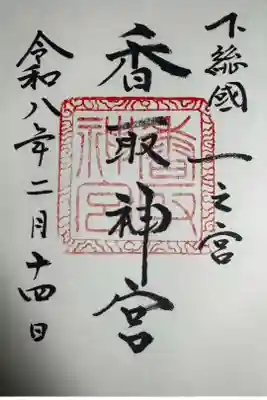 下総國一之宮
香取神宮
令和八年二月十四日
香取
神宮